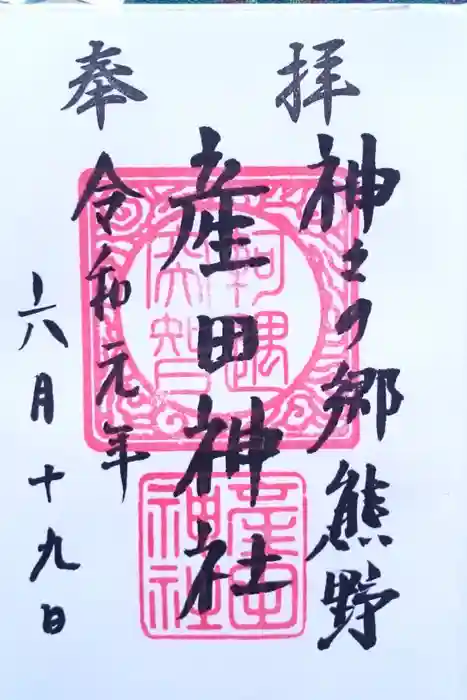 奉拝
神々の郷熊野
産田神社
令和元年
六月十九日
産田神社